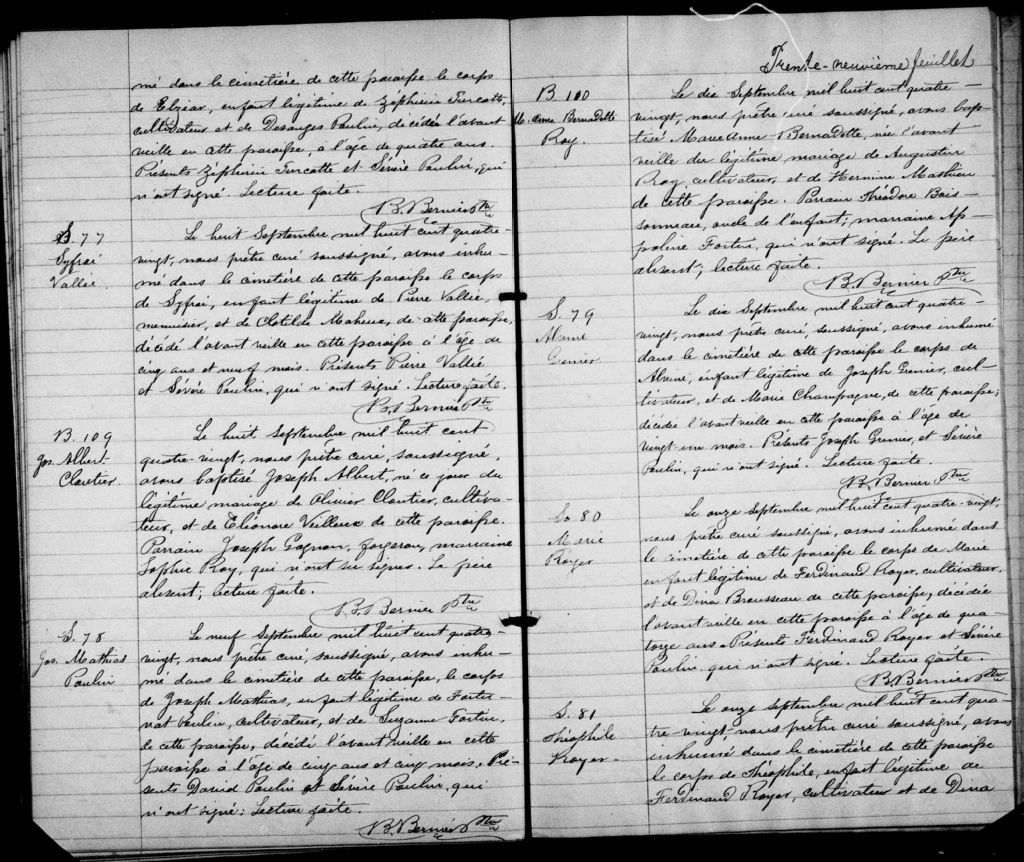 mé dans le cimetière de cette paroisse le corps
de Elzéar, enfant légitime de Zéphirin Turcotte,
cultivateur et de Desanges Poulin, décédé l'avant
veille en cette paroisse, à l'age de quatre ans.
Présents Zéphirin Turcotte et Sévère Poulin, qui
n'ont signé. Lecture faite.
B. Bernier Ptre
S. 77
Syfroi
Vallée.
Le huit Septembre mil huit cent quatre-
vingt, nous prêtre curé soussigné, avons inhu-
mé dans le cimetière de cette paroisse le corps
de Syfroi, enfant légitime de Pierre Vallée,
menuisier, et de Clotilde Maheux, de cette paroisse,
décédé l'avant veille en cette paroisse à l'âge de
cinq ans et neuf mois. Présents Pierre Vallée
et Sévère Poulin, qui n'ont signé. Lecture faite.
B. Bernier Ptre
B. 109
Jos. Albert
Cloutier.
Le huit Septembre mil huit cent
quatre-vingt, nous prêtre curé, soussigné,
avons baptisé Joseph Albert, né ce jour du
légitime mariage de Olivier Cloutier, cultiva-
teur, et de Eléonore Veilleux de cette paroisse.
Parrain Joseph Gagnon, forgeron, marraine
Sophie Roy, qui n'ont su signer. Le père
absent; lecture faite.
B. Bernier Ptre
S. 78
Jos. Mathias
Poulin
Le neuf Septembre mil huit cent quatre-
vingt, nous prêtre curé, soussigné, avons inhu-
mé dans le cimetière de cette paroisse, le corps
de Joseph Mathias, enfant légitime de Fortu-
nat Poulin, cultivateur, et de Suzanne Fortin,
de cette paroisse, décédé l'avant veille en cette
paroisse à l'age de cinq ans et cinq mois. Pré-
sents David Poulin et Sévère Poulin, qui
n'ont signé; Lecture faite.
B. Bernier Ptre
Trente-neuvième feuillet
B. 110
M. Anne Bernadette
Roy.
Le dix Septembre mil huit cent quatre-
vingt, nous prêtre curé soussigné, avons bap-
tisé Marie Anne Bernadette, née l'avant
veille du légitime mariage de Augustin
Roy, cultivateur, et de Hermine Mathieu
de cette paroisse. Parrain Théodore Bois-
sonneau, oncle de l'enfant; marraine Ap-
poline Fortin, qui n'ont signé. Le père
absent; lecture faite.
B. Bernier Ptre
S. 79
Grenier.
Le dix Septembre mil huit cent quatre-
vingt, nous prêtre curé, soussigné, avons inhumé
dans le cimetière de cette paroisse le corps de
enfant légitime de Joseph Grenier, cul-
tivateur, et de Marie Champagne, de cette paroisse;
décédée l'avant veille en cette paroisse à l'age de
vingt-un mois. Présents Joseph Grenier, et Sévère
Poulin, qui n'ont signé. Lecture faite.
B. Bernier Ptre
S. 80
Marie
Royer
Le onze septembre mil huit cent quatre-vingt,
nous prêtre curé soussigné, avons inhumé dans
le cimetière de cette paroisse le corps de Marie
enfant légitime de Ferdinand Royer, cultivateur,
et de Dina Brousseau de cette paroisse, décédée
l'avant veille en cette paroisse à l'âge de qua-
torze ans. Présents Ferdinand Royer et Sévère
Poulin, qui n'ont signé. Lecture faite.
B. Bernier Ptre
S. 81
Théophile
Royer.
Le onze septembre mil huit cent qua-
tre-vingt, nous prêtre curé soussigné, avons
inhumé dans le cimetière de cette paroisse
le corps de Théophile, enfant légitime de
Ferdinand Royer, cultivateur et de Dina